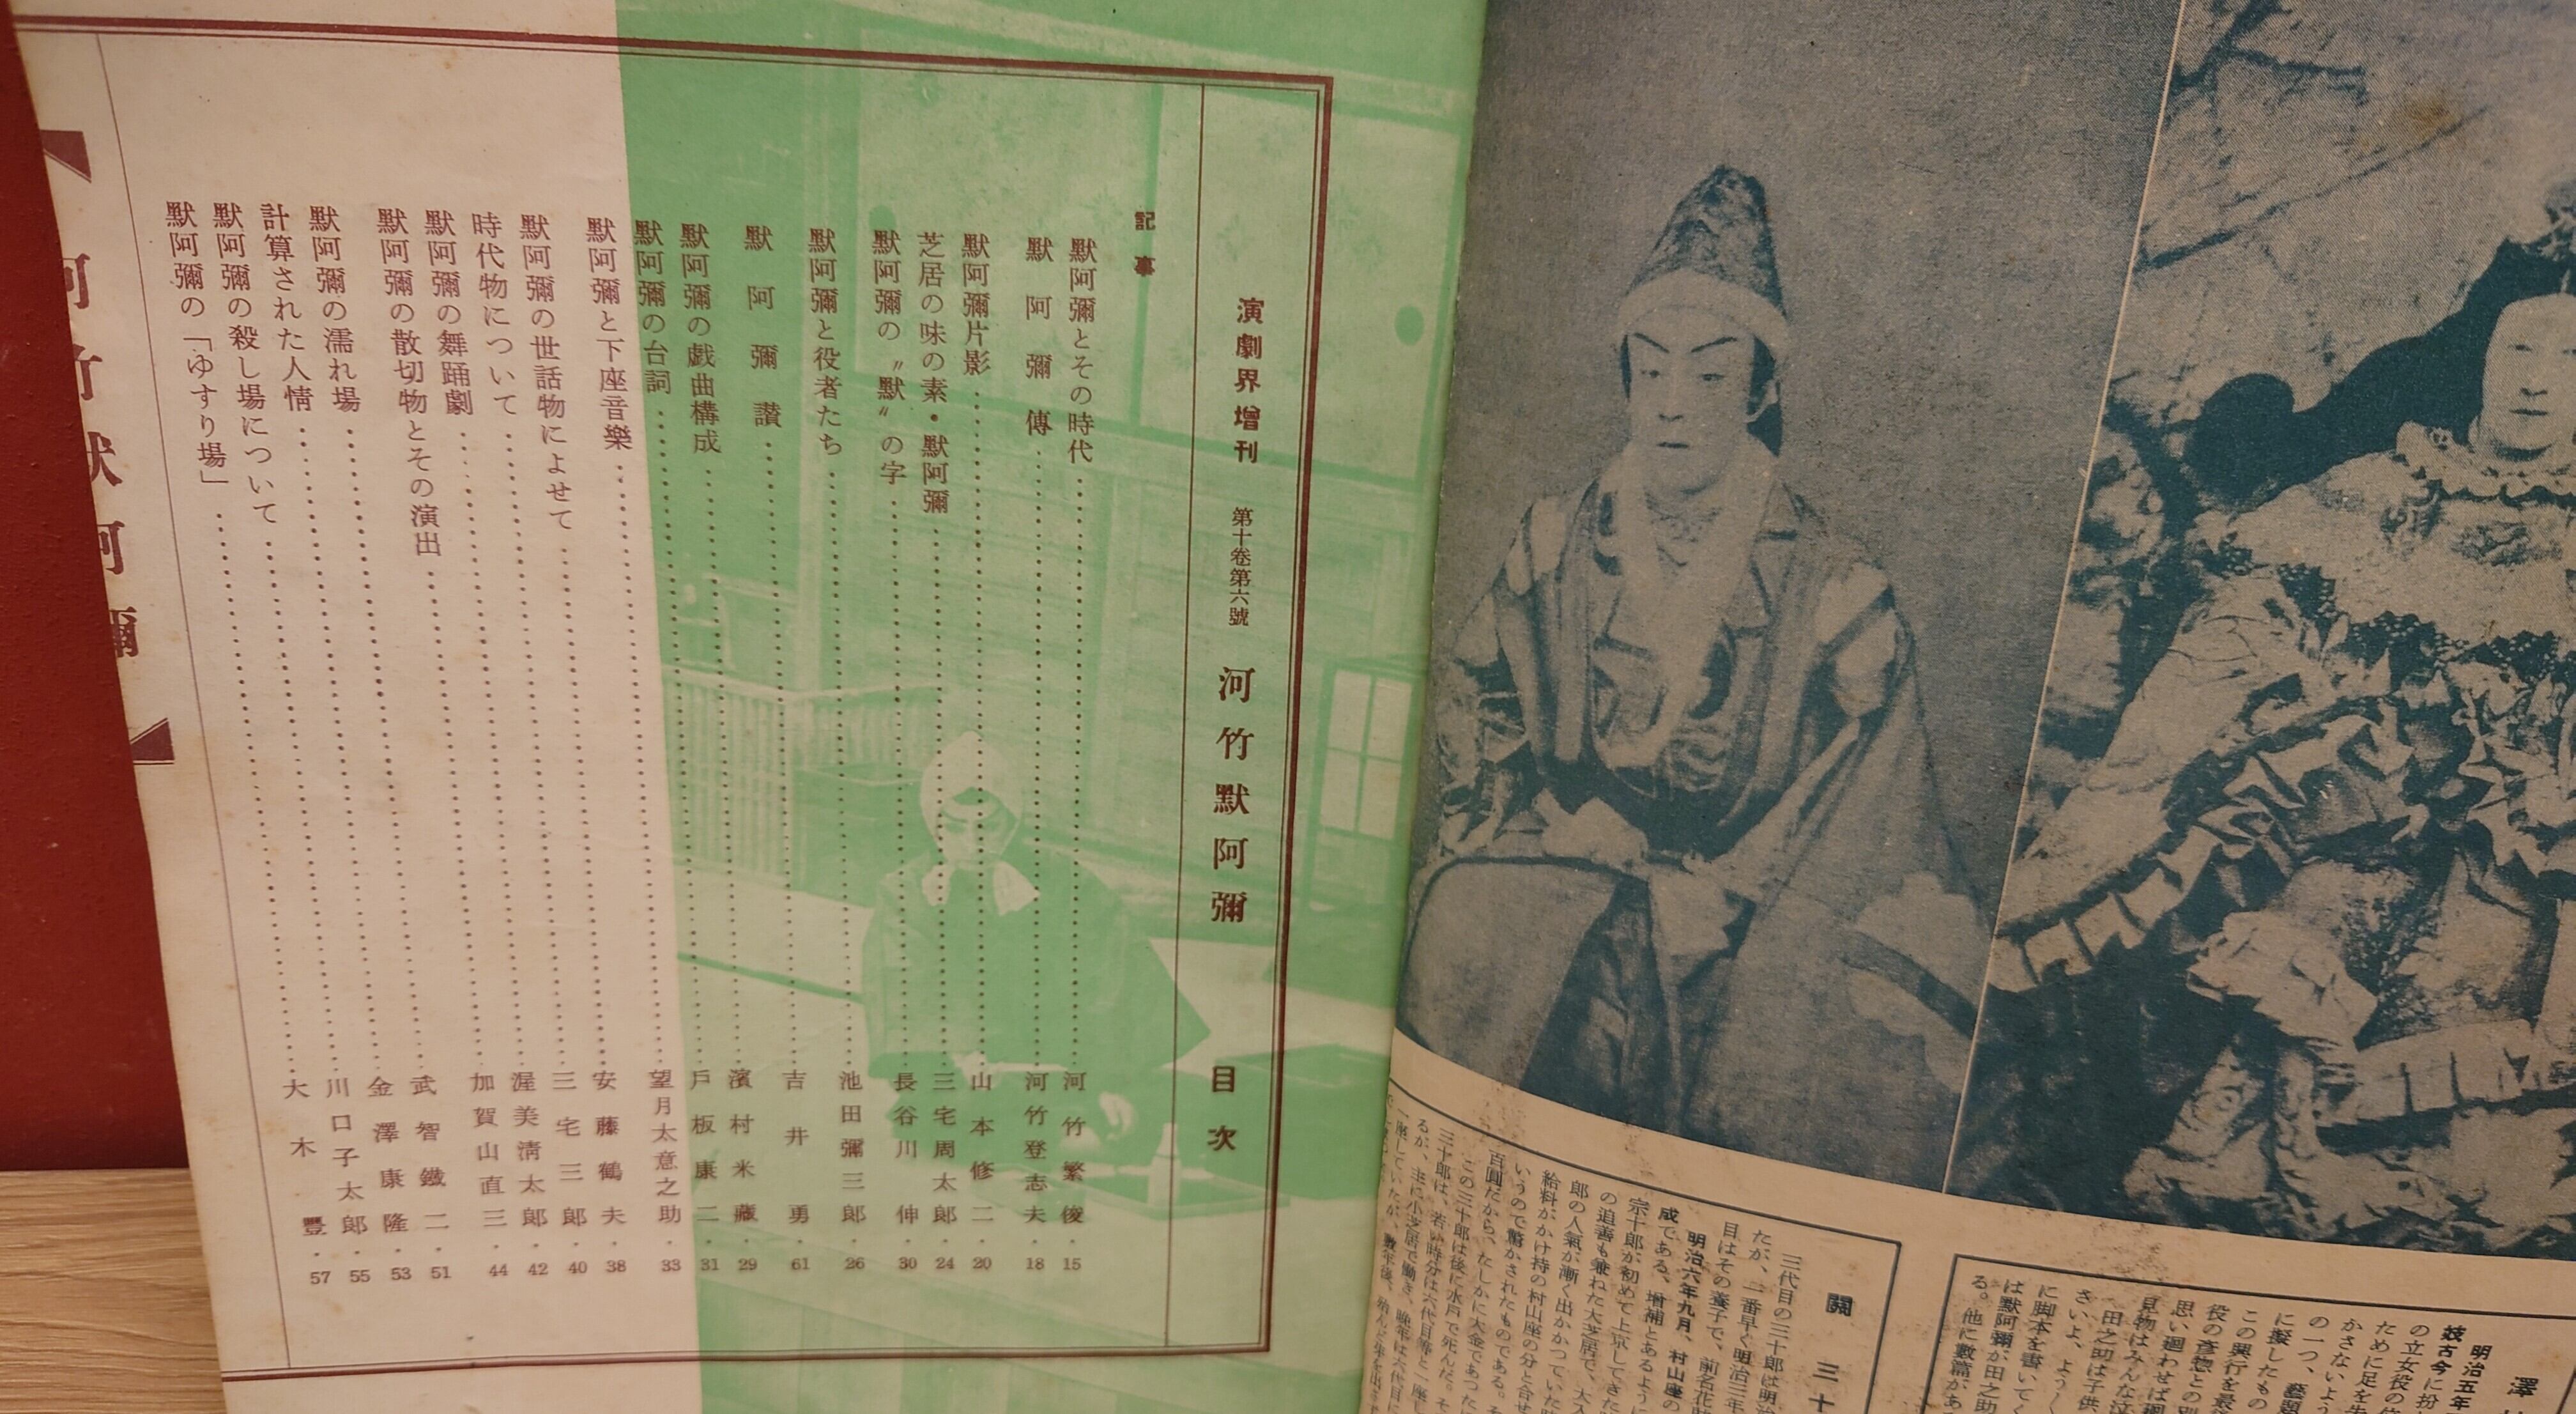 演劇界增刊 第十卷第六號 河竹默阿彌 目次
記事
默阿彌とその時代 河竹繁俊 15
默阿彌傳 河竹登志夫 18
默阿彌片影 山本修二 20
芝居の味の素・默阿彌 三宅周太郎 24
默阿彌の〝默〟の字 長谷川伸 30
默阿彌と役者たち 池田彌三郎 26
默阿彌讃 吉井勇 61
默阿彌の戯曲構成 濱村米藏 29
默阿彌の台詞 戸板康二 31
默阿彌と下座音樂 望月太意之助 33
默阿彌の世話物によせて 安藤鶴夫 38
時代物について 三宅三郎 40
默阿彌の舞踊劇 渥美淸太郎 42
默阿彌の散切物とその演出 加賀山直三 44
默阿彌の濡れ場 武智鐵二 51
計算された人情 金澤康隆 53
默阿彌の殺し場について 川口子太郎 55
默阿彌の「ゆすり場」 大木豐 57
河竹默阿彌
澤
明治五年
の立女役の
ために足を
かさないよう
の一つ、藝題
に擬したもの
この興行を最
役の彥惣との
思い廻わせば
見物はみんな泣
田之助は子供
さいよ、よう
に脚本を書いてく
は默阿彌が田之助
る。他に數篇があ
關三十
三代目の三十郎は明治
たが、一番早く明治三年
目はその養子で、前名花
明治六年九月、村山座の
成である。增補とあるように
宗十郎が初めて上京してきた
の追善も兼ねた大芝居で、大入
郎の人氣が漸く出かかつていた
給料がかけ持の村山座の分と合せ
いうので驚かされたものである。
百圓だから、たしかに大金であつた
この三十郎は後に水戸で死んだ。そ
三十郎は、若い時分は六代目等と一座し
るが、主に小芝居で働き、晩年は六代目に
一座していたが、數年後、